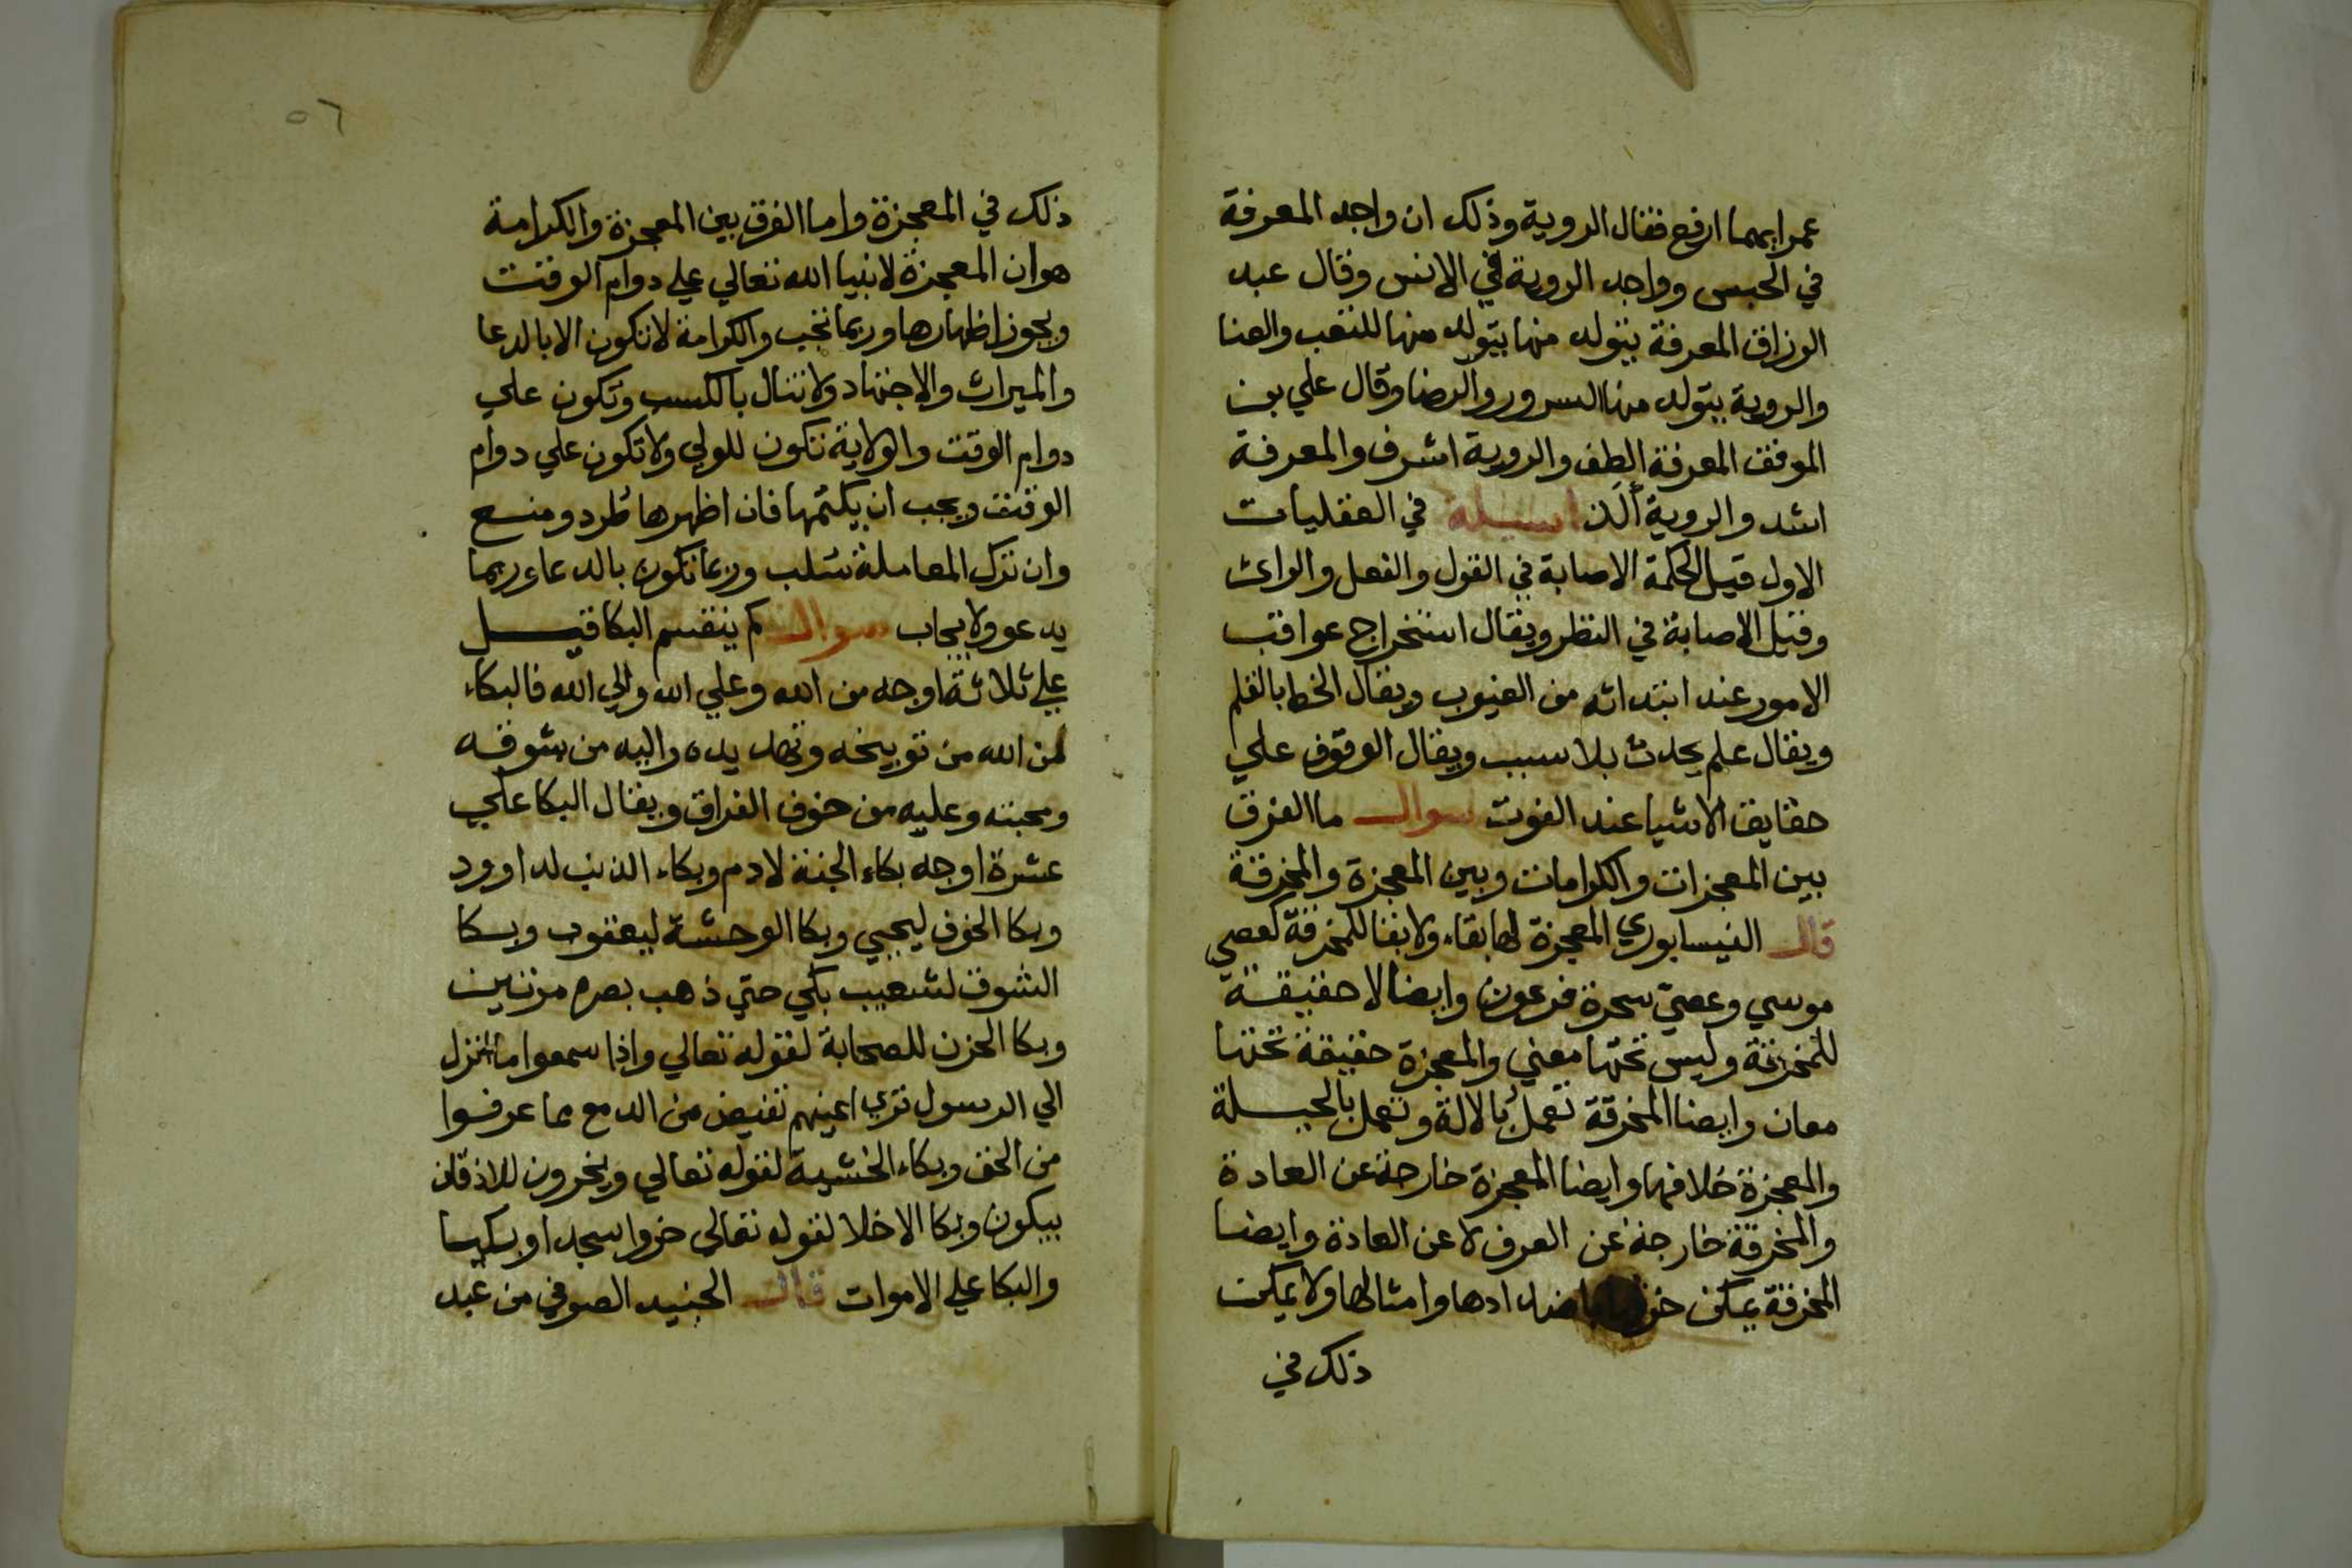 عمر ايهما ارفع فقال الروية وذلك ان واجد المعرفة
في الحبس وواجد الروية في الانس وقال عبد
الرزاق المعرفة يتولد منها يتولد منها للتعب والعنا
والروية يتولد منها السرور والرضا وقال علي بن
الموفق المعرفة الطف والروية اشرف والمعرفة
اشد والروية الذ اسيلة في العقليات
الاول قيل الحكمة الاصابة في القول والفعل والراي
وقيل الاصابة في النظر ويقال استخراج عواقب
الامور عند ابتدائه من الغيوب ويقال الخط بالقلم
ويقال علم يحدث بلا سبب ويقال الوقوف علي
حقايق الاشيا عند الفوت سوال ما الفرق
بين المعجزات والكرامات وبين المعجزة والمخرقة
قال النيسابوري المعجزة لها بقاء ولا بقا للمخرقة كعصي
موسي وعصي سحرة فرعون وايضا لا حقيقة
للمخرقة وليس تحتها معني والمعجزة حقيقة تحتها
معان وايضا المخرقة تعمل بالالة وتعمل بالحيلة
والمعجزة خلافها وايضا المعجزة خارجة عن العادة
والمخرقة خارجة عن العرف لا عن العادة وايضا
المخرقة يمكن اضدادها وامثالها ولا يمكن
ذلك في
٥٦
ذلك في المعجزة واما الفرق بين المعجزة والكرامة
هو ان المعجزة لانبيا الله تعالي علي دوام الوقت
ويجوز اظهارها وربما تجب والكرامة لا تكون الا بالدعا
والميراث والاجتهاد ولا تنال بالكسب وتكون علي
دوام الوقت والولاية تكون للولي ولا تكون علي دوام
الوقت ويجب ان يكتمها فان اظهرها طرد ومنع
وان ترك المعاملة سلب وربما تكون بالدعا وربما
يدعو ولا يجاب سوال كم ينقسم البكا قيل
علي ثلاثة اوجه من الله وعلي الله والي الله فالبكاء
لمن الله من توبيخه وتهديده واليه من شوقه
ومحبته وعليه من خوف الفراق ويقال البكا علي
عشرة اوجه بكاء الجنة لادم وبكاء الذنب لداوود
وبكا الخوف ليحيي وبكا الوحشة ليعقوب وبكا
الشوق لشعيب بكي حتي ذهب بصره مرتين
وبكا الحزن للصحابة لقوله تعالي واذا سمعوا ما انزل
الي الرسول تري اعينهم تفيض من الدمع مما عرفوا
من الحق وبكاء الخشية لقوله تعالي ويخرون للاذقان
يبكون وبكا الاخلا لقوله تعالي خروا سجدا وبكيا
والبكا علي الاموات قال الجنيد الصوفي من عبد